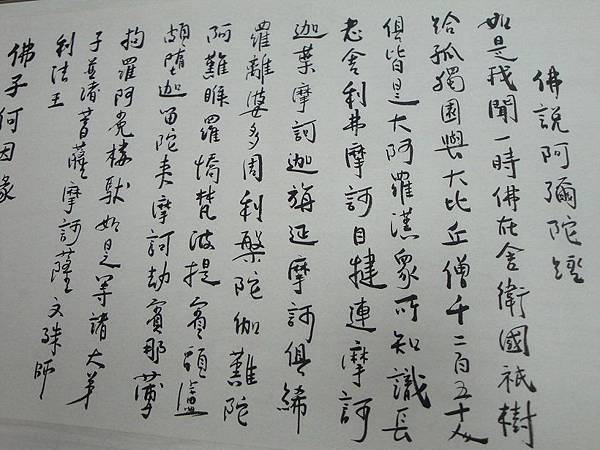 佛說阿彌陀經
如是我聞一時佛在舍衛國祇樹
給孤獨園與大比丘僧千二百五十人
俱皆是大阿羅漢眾所知識長
老舍利弗摩訶目犍連摩訶
迦葉摩訶迦旃延摩訶俱絺
羅離婆多周利槃陀伽難陀
阿難睺羅憍梵波提賓頭盧
頗墮迦留陀夷摩訶劫賓那薄
拘羅阿㝹樓馱如是等諸大弟
子並諸菩薩摩訶薩文殊師
利法王
佛子何因緣